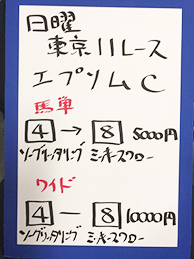 日曜
東京11レース
エプソムC
馬単
4 → 8 5000円
ソーグリッタリング ミッキースワロー
ワイド
4 — 8 10000円
ソーグリッタリング ミッキースワロー